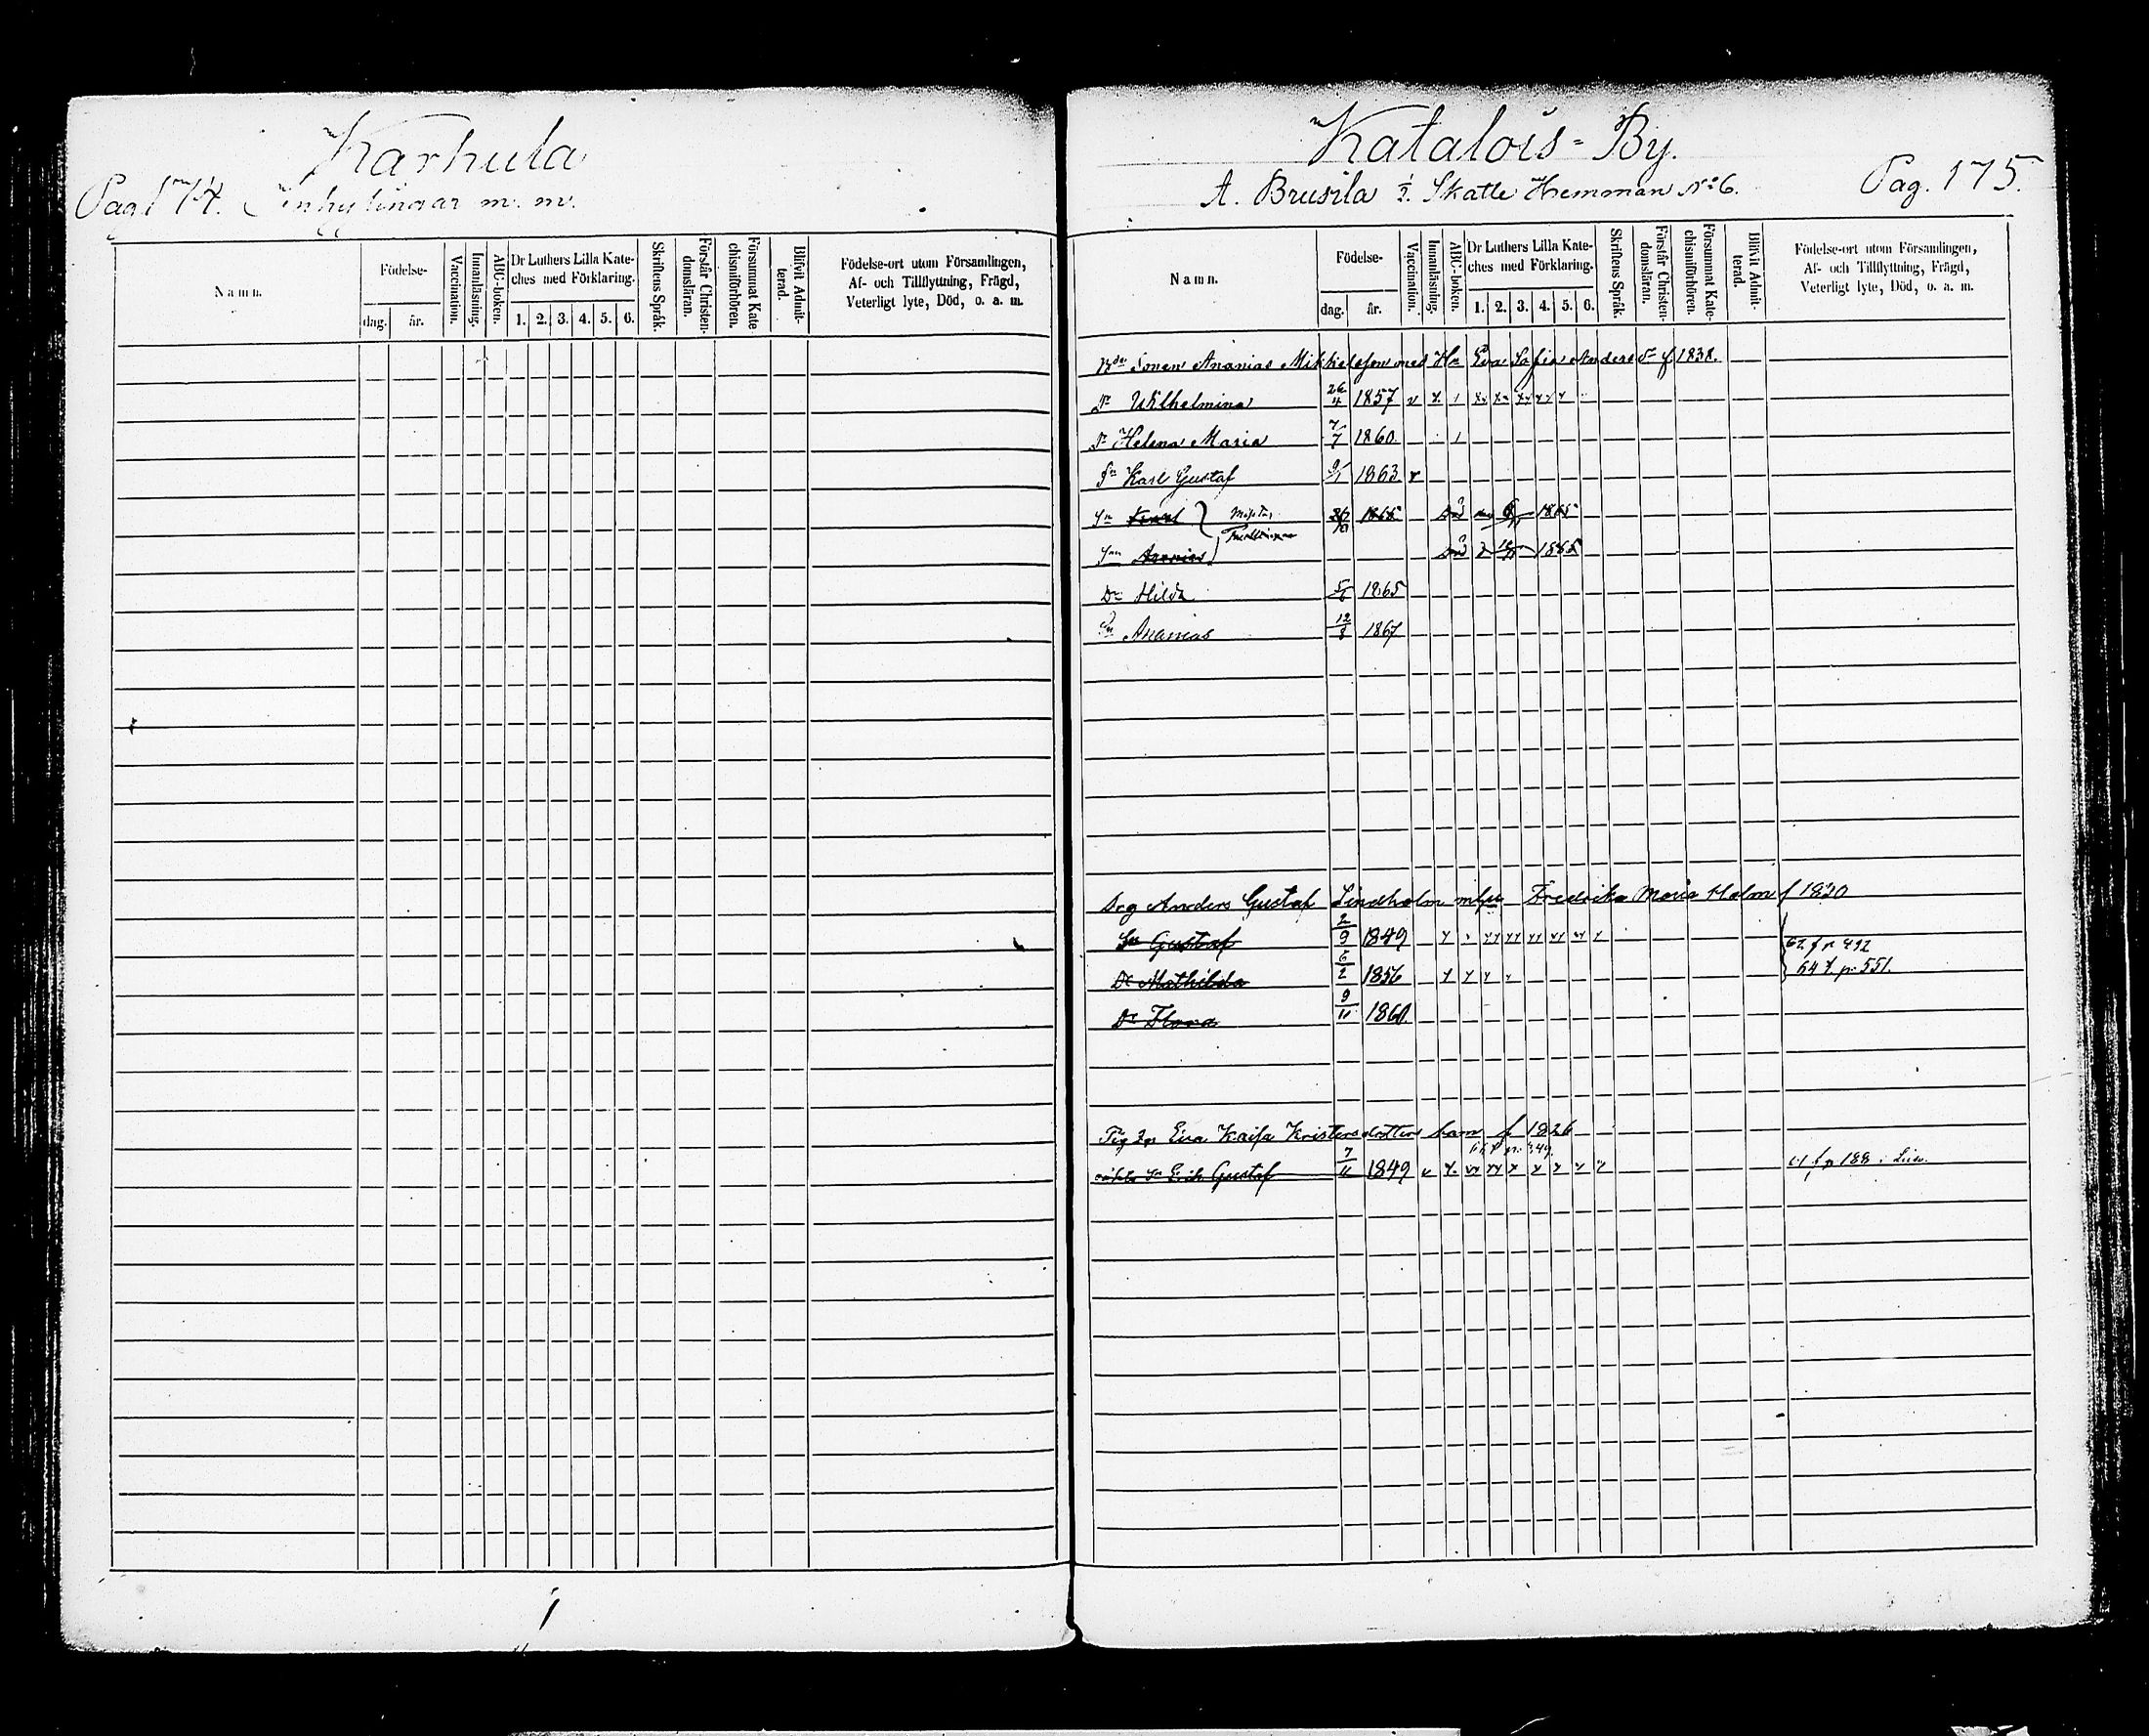 Karhula
Pag 174. Inhysingar m. m.
Namn.
Födelse-
dag.
år.
Vaccination.
Innanläsning.
ABC-boken.
Dr Luthers Lilla Kate-
ches med Förklaring.
1. 2. 3. 4. 5. 6.
Skriftens Språk.
Förstår Christen-
domsläran.
Försummat Kate-
chismiförhören.
Blifvit Admit-
terad.
Födelse-ort utom Församlingen,
Af- och Tillflyttning, Frägd,
Veterligt lyte, Död, o. a. m.
Katalois-By.
A. Brusila ½ Skatte Hemman No 6.
Pag. 175.
Namn.
Födelse-
dag.
år.
Vaccination.
Innanläsning.
ABC-boken.
Dr Luthers Lilla Kate-
ches med Förklaring.
1. 2. 3. 4. 5. 6.
Skriftens Språk.
Förstår Christen-
domsläran.
Försummat Kate-
chismiförhören.
Blifvit Admit-
terad.
Födelse-ort utom Församlingen,
Af- och Tillflyttning, Frägd,
Veterligt lyte, Död, o. a. m.
Sonen Ananias Mikkelsson med Hu Eva Sofia Anders dr f 1838.
Dr Wilhelmina 26/4 1857
Dr Helena Maria 7/7 1860
Sn Karl Gustaf 9/1 1863
Sn Karl 1865 död 1865
Sn Ananias död 1865
Dr Hilda 5/6 1865
Sn Ananias 12/8 1867
Anders Gustaf Lindholm m hu Fredrika Maria Holm f 1820
Sn Gustaf 2/9 1849 62 f p 492
Dr Mathilda 6/2 1856 64 f. p. 551.
Dr Flora 9/11 1860
Eva Kaisa Kristersdotter f 1826
oäkta Sn Erik Gustaf 7/11 1849 f p 188